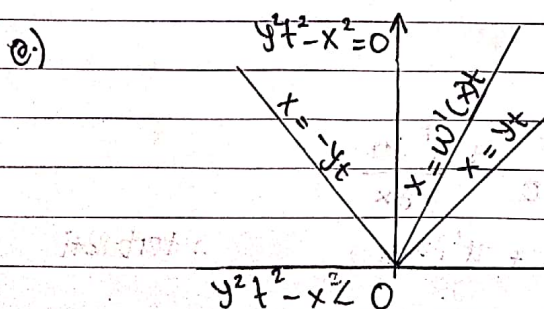 e.)
y²t²-x²=0
x = -yt
x = ω'(x)t
x = yt
y²t²-x²< 0